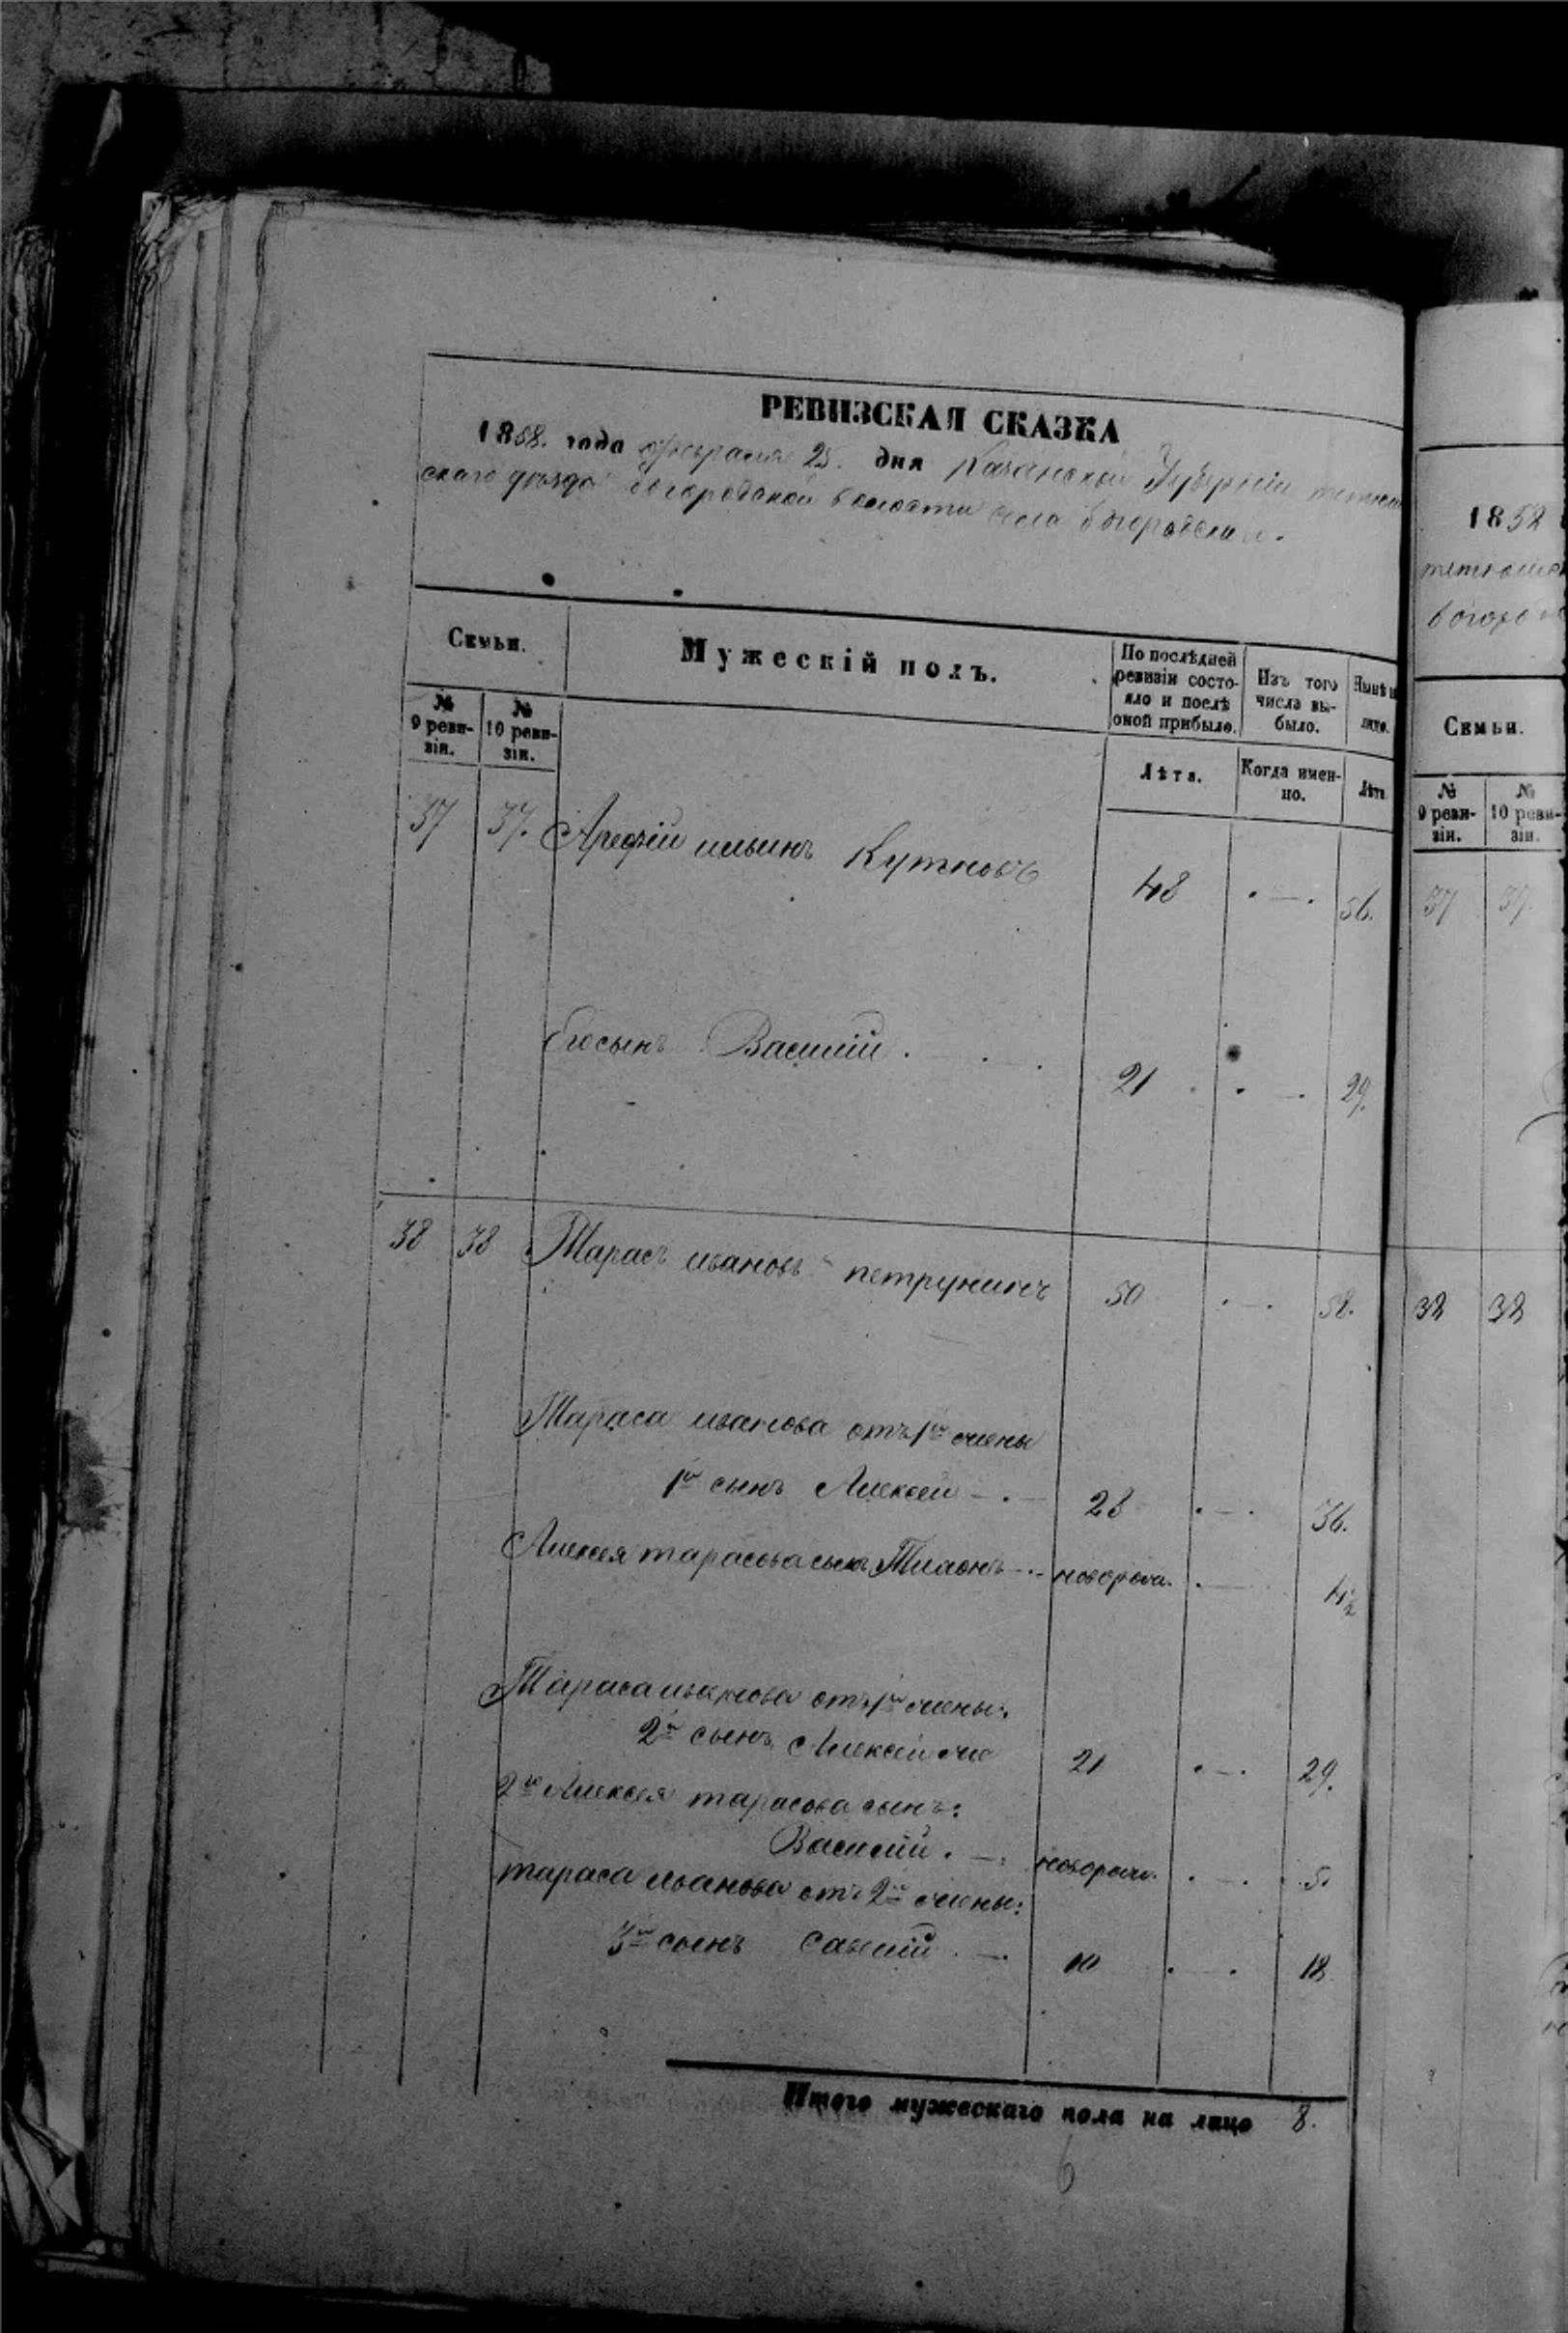 РЕВИЗСКАЯ СКАЗКА
1858. года февраля 25. дня Казанской Губерніи тетюш
скаго уѣзда богородской волости села богородска
Семьи.
Мужескій полъ.
По послѣдней ревизіи состояло и послѣ оной прибыло.
Изъ того числа выбыло.
Нынѣ
лицо.
№ 9 ревизіи.
№ 10 ревизіи.
Лѣта.
Когда именно.
Лѣта
37 37. Арефій ильинъ Кутновъ 48 56.
Его сынъ Василій. 21 29.
38 38 Тарасъ ивановъ петрунинъ 50 58.
Тараса иванова отъ 1й жены
1й сынъ Алексей 28 36.
Алексея тарасова сынъ Тихонъ новорож. 4½
Тараса иванова отъ 1й жены:
2й сынъ Алексей же 21 29.
2го Алексея тарасова сынъ:
Василій. новорож. 5.
тараса иванова отъ 2й жены:
3й сынъ Савелій 10 18.
Итого мужескаго пола на лицо 8.
6
1858
тетюшск
богоро
Семьи.
№ 9 ревизіи.
№ 10 ревизіи.
37 37.
38 38